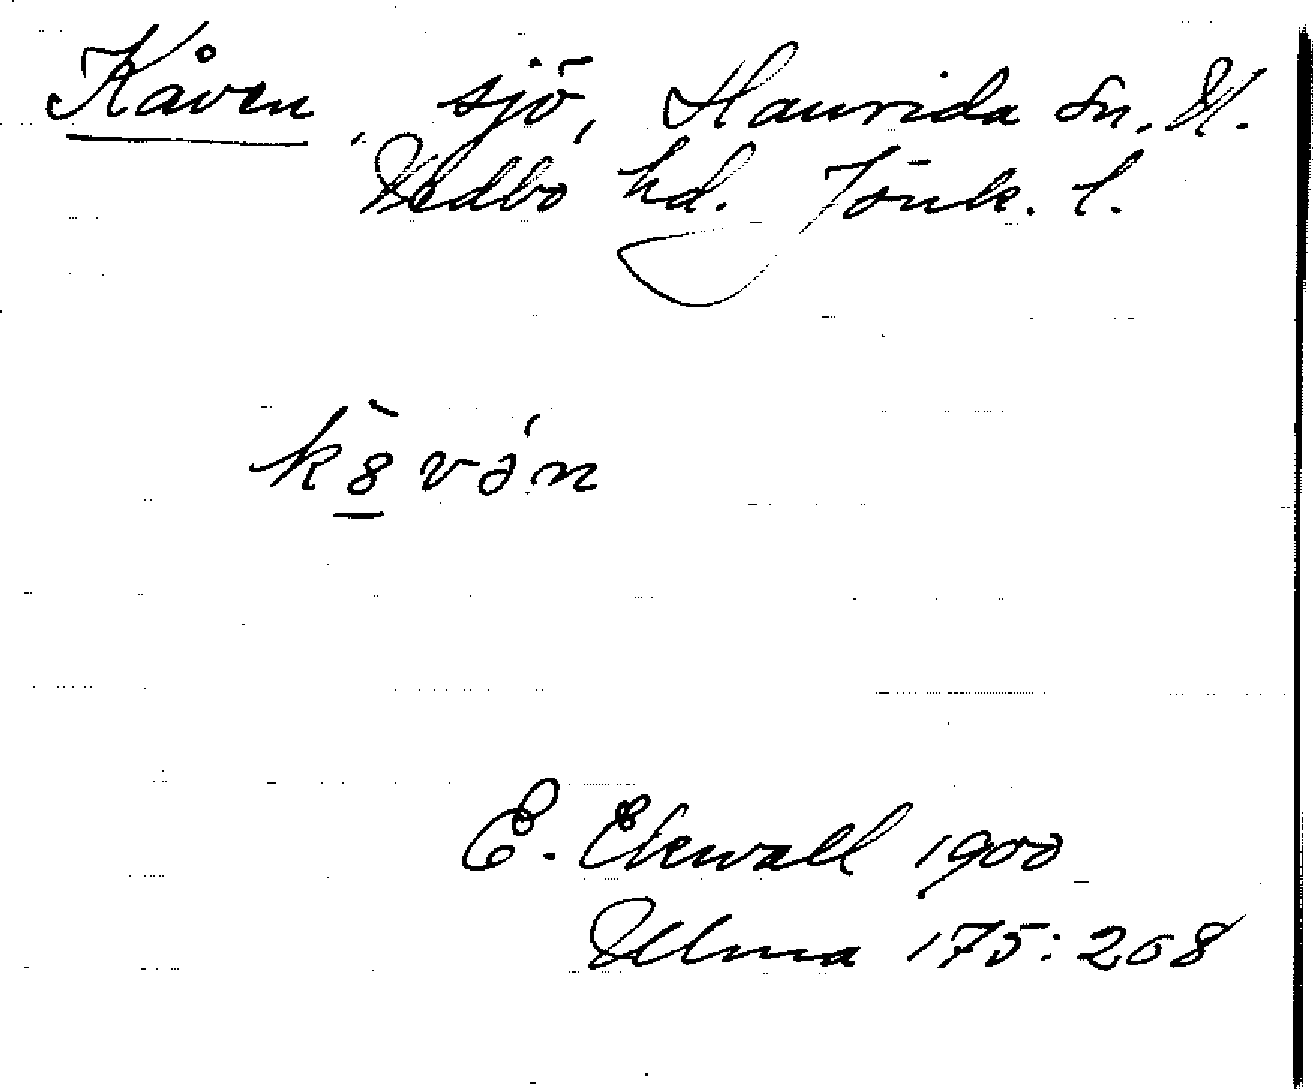 Kåven, sjö, Haurida sn. N.
Vedbo hd. Jönk. l.
k8̱̀vən
E. Ekwall 1900
Ulma 175:268